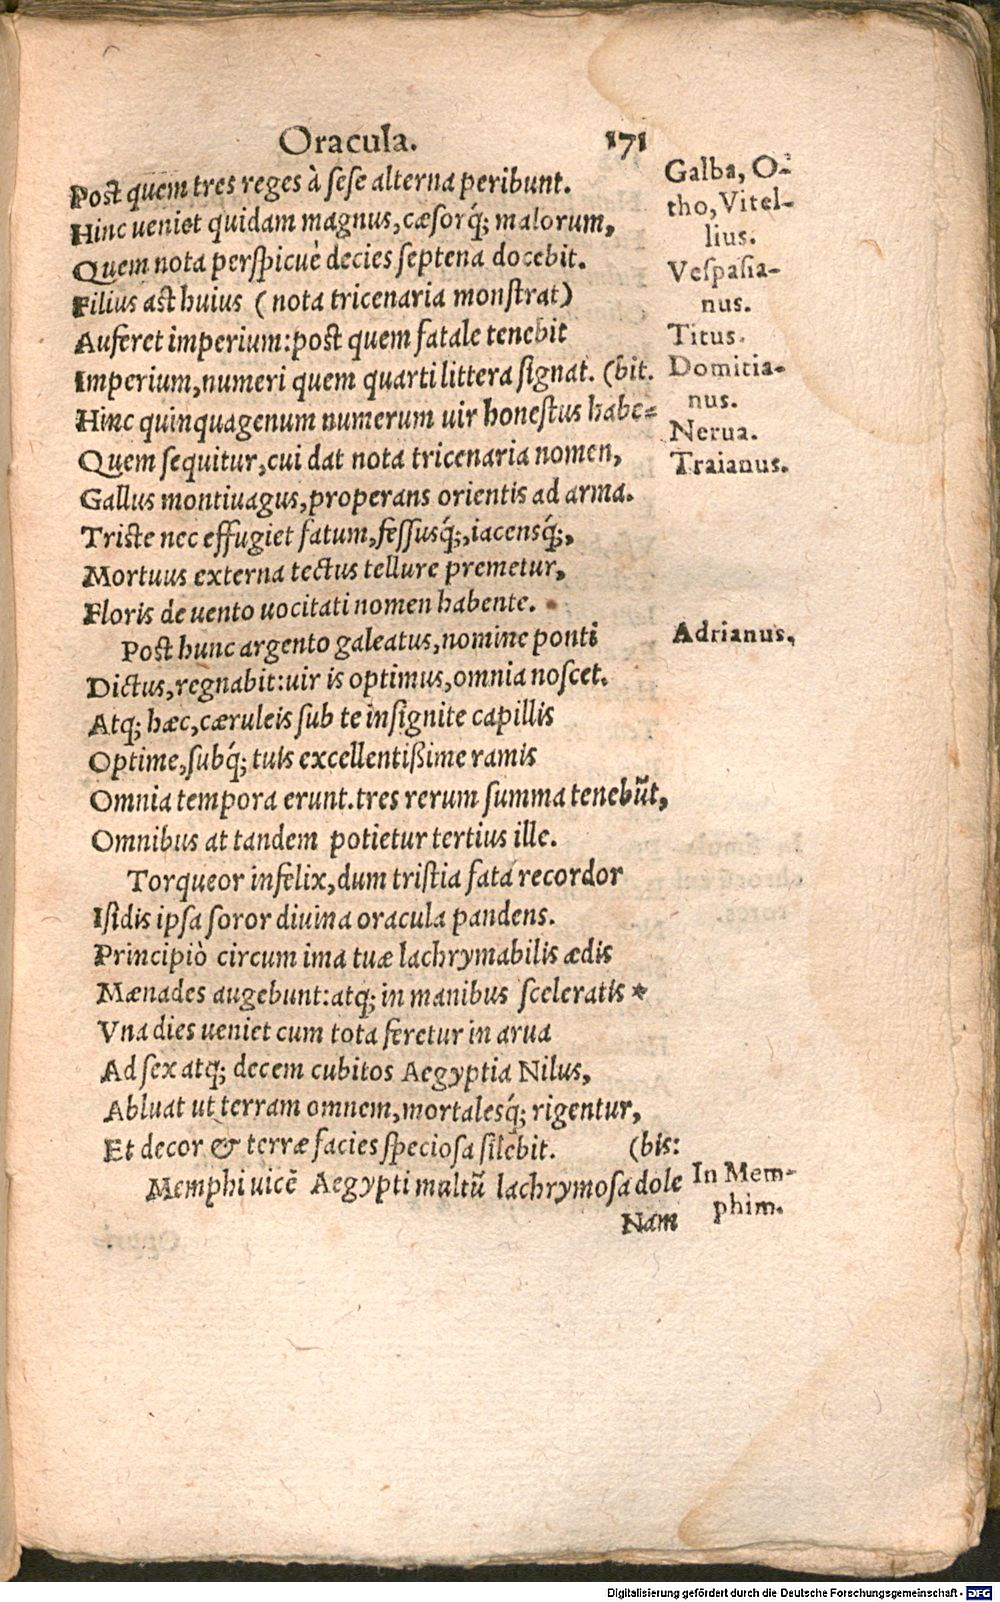 Oracula. 171
Post quem tres reges à sese alterna peribunt.
Hinc ueniet quidam magnus, cæsorq́; malorum,
Quem nota perspicuè decies septena docebit.
Filius ast huius (nota tricenaria monstrat)
Auferet imperium: post quem fatale tenebit
Imperium, numeri quem quarti littera signat. (bit.
Hinc quinquagenum numerum uir honestus habe=
Quem sequitur, cui dat nota tricenaria nomen,
Gallus montiuagus, properans orientis ad arma.
Triste nec effugiet fatum, fessusq́;, iacensq́;,
Mortuus externa tectus tellure premetur,
Floris de uento uocitati nomen habente.
Post hunc argento galeatus, nomine ponti
Dictus, regnabit: uir is optimus, omnia noscet.
Atq; hæc, cæruleis sub te insignite capillis
Optime, subq́; tuis excellentißime ramis
Omnia tempora erunt. tres rerum summa tenebũt,
Omnibus at tandem potietur tertius ille.
Torqueor infelix, dum tristia fata recordor
Isidis ipsa soror diuina oracula pandens.
Principiò circum ima tuæ lachrymabilis ædis
Mænades augebunt: atq; in manibus sceleratis *
Vna dies ueniet cum tota feretur in arua
Ad sex atq; decem cubitos Aegyptia Nilus,
Abluat ut terram omnem, mortalesq́; rigentur,
Et decor & terræ facies speciosa silebit. (bis:
Memphi uicẽ Aegypti multũ lachrymosa dole
Nam
Galba, O-
tho, Vitel-
lius.
Vespasia-
nus.
Titus.
Domitia-
nus.
Nerua.
Traianus.
Adrianus.
In Mem-
phim.
Digitalisierung gefördert durch die Deutsche Forschungsgemeinschaft - DFG